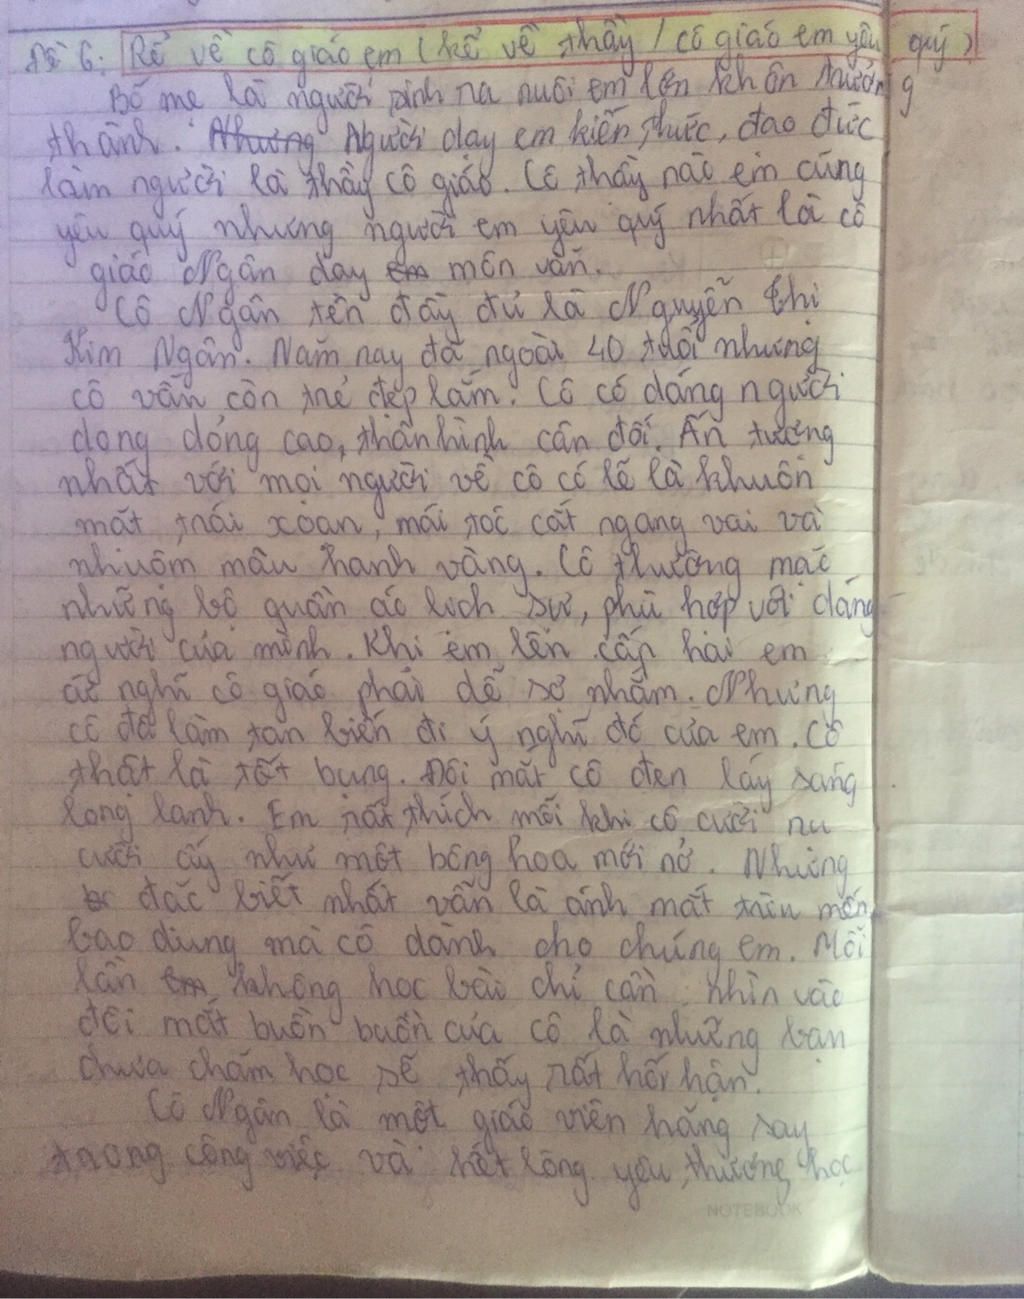 Đề 6: Kể về cô giáo em (kể về thầy / cô giáo em yêu quý)
Bố mẹ là người sinh ra nuôi em lớn khôn trưởng
thành. Nhưng Người dạy em kiến thức, đạo đức
làm người là thầy cô giáo. Cô thầy nào em cũng
yêu quý nhưng người em yêu quý nhất là cô
giáo Ngân dạy em môn văn.
Cô Ngân tên đầy đủ là Nguyễn Thị
Kim Ngân. Năm nay đã ngoài 40 tuổi nhưng
cô vẫn còn trẻ đẹp lắm. Cô có dáng người
dong dỏng cao, thân hình cân đối. Ấn tượng
nhất với mọi người về cô có lẽ là khuôn
mặt trái xoan, mái tóc cắt ngang vai và
nhuôm màu hanh vàng. Cô thường mặc
những bộ quần áo lịch sự, phù hợp với dáng
người của mình. Khi em lên cấp hai em
cứ nghĩ cô giáo phải dễ sợ nhắm. Nhưng
cô đã làm tan biến đi ý nghĩ đó của em. Cô
thật là tốt bụng. Đôi mắt cô đen láy sáng
long lanh. Em rất thích mỗi khi cô cười nụ
cười ấy như một bông hoa mới nở. Nhưng
đặc biệt nhất vẫn là ánh mắt trìu mến
bao dung mà cô dành cho chúng em. Mỗi
lần em không học bài chỉ cần nhìn vào
đôi mắt buồn buồn của cô là những bạn
chưa chăm học sẽ thấy rất hối hận.
Cô Ngân là một giáo viên hăng say
trong công việc và hết lòng yêu thương học
NOTEBOOK